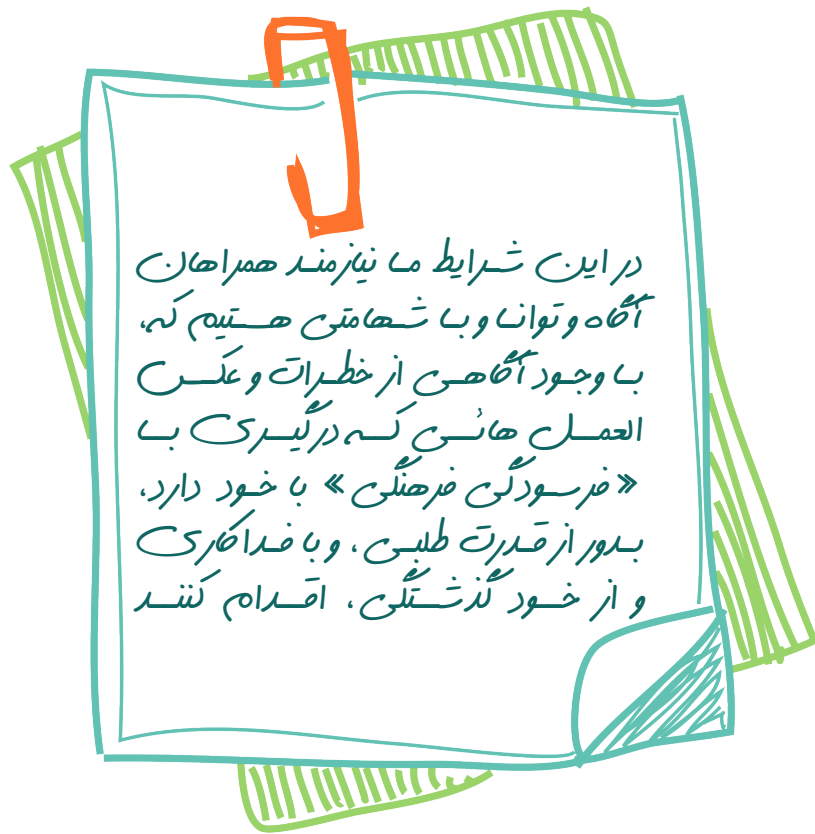 در این شرایط ما نیازمند همراهان
آگاه و توانا و با شهامتی هستیم که،
با وجود آگاهی از خطرات و عکس
العمل هائی که درگیری با
«فرسودگی فرهنگی» با خود دارد،
بدور از قدرت طلبی، و با فداکاری
و از خود گذشتگی، اقدام کنند